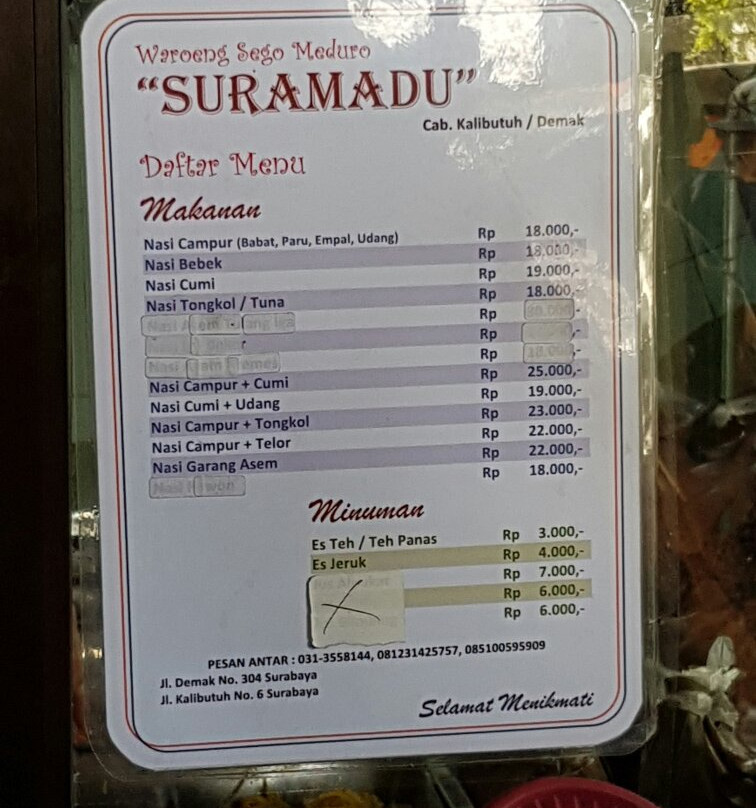 Waroeng Sego Meduro
“SURAMADU”
Cab. Kalibutuh / Demak
Daftar Menu
Makanan
Nasi Campur (Babat, Paru, Empal, Udang) Rp 18.000,-
Nasi Bebek Rp 18.000,-
Nasi Cumi Rp 19.000,-
Nasi Tongkol / Tuna Rp 18.000,-
Nasi Rp
Rp
Nasi Rp
Nasi Campur + Cumi Rp 25.000,-
Nasi Cumi + Udang Rp 19.000,-
Nasi Campur + Tongkol Rp 23.000,-
Nasi Campur + Telor Rp 22.000,-
Nasi Garang Asem Rp 22.000,-
Nasi Rp 18.000,-
Minuman
Es Teh / Teh Panas Rp 3.000,-
Es Jeruk Rp 4.000,-
Rp 7.000,-
Rp 6.000,-
Rp 6.000,-
PESAN ANTAR : 031-3558144, 081231425757, 085100595909
Jl. Demak No. 304 Surabaya
Jl. Kalibutuh No. 6 Surabaya
Selamat Menikmati